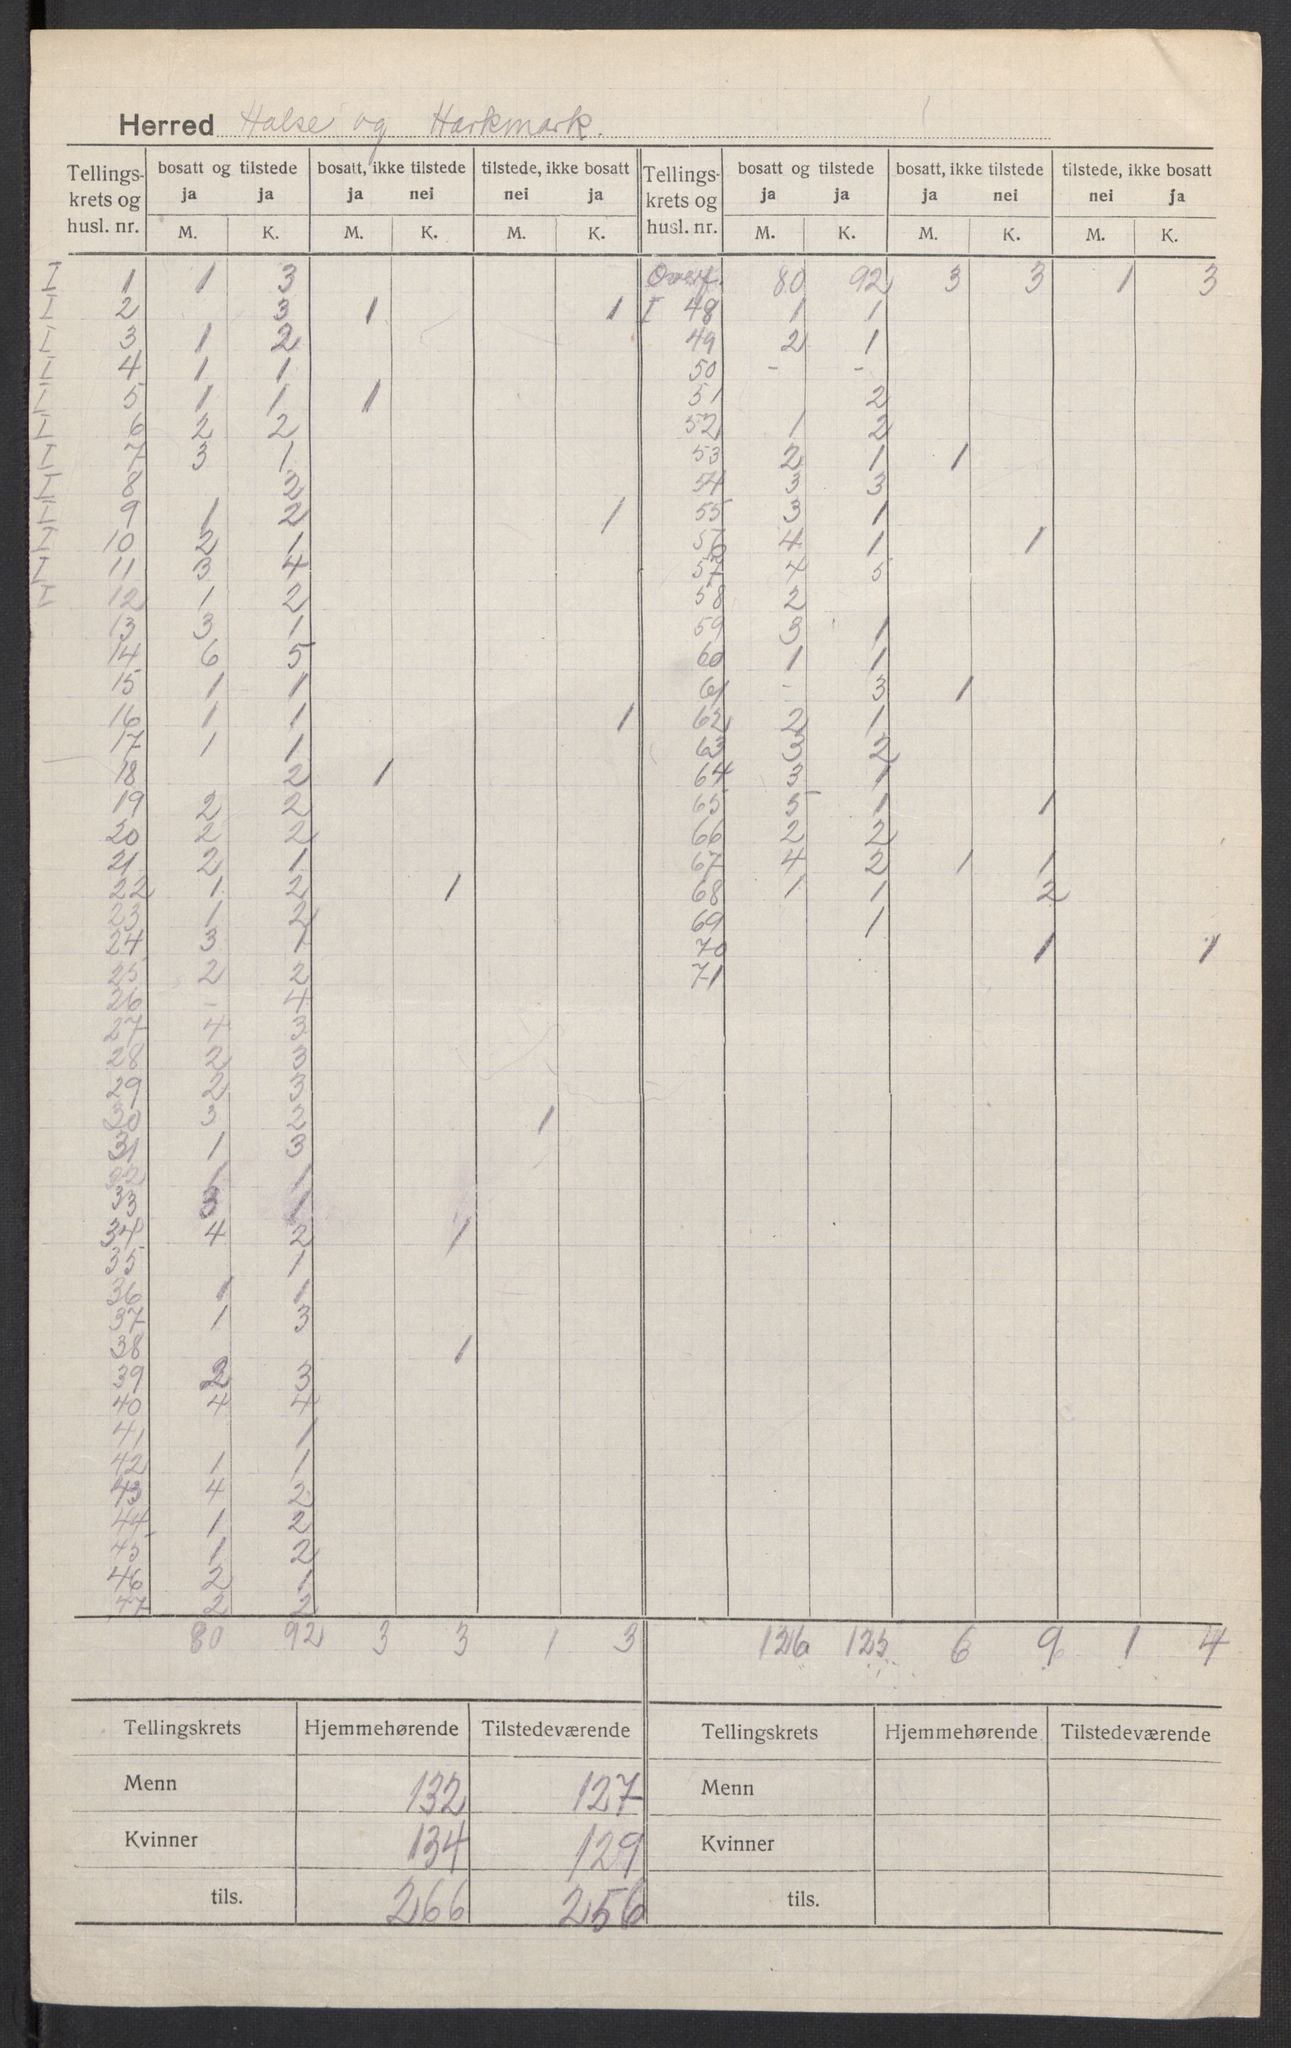 Herred Halse og Harkmark. 1
Tellings- krets og husl. nr. | bosatt og tilstede ja ja | bosatt, ikke tilstede ja nei | tilstede, ikke bosatt nei ja | Tellings- krets og husl. nr. | bosatt og tilstede ja ja | bosatt, ikke tilstede ja nei | tilstede, ikke bosatt nei ja
M. K. M. K. M. K. M. K. M. K. M. K.
I 1 1 3 Overf. 80 92 3 3 1 3
I 2 3 1 1 I 48 1 1
I 3 1 2 49 2 1
I 4 1 1 50 - -
I 5 1 1 1 51 2
I 6 2 2 52 1 2
I 7 3 1 53 2 1 1
I 8 2 54 3 3
I 9 1 2 1 55 3 1
I 10 2 1 56 4 1 1
I 11 3 4 57 4 5
I 12 1 2 58 2
13 3 1 59 3 1
14 6 5 60 1 1
15 1 1 61 - 3 1
16 1 1 1 62 2 1
17 1 1 63 3 2
18 2 1 64 3 1
19 2 2 65 5 1 1
20 2 2 66 2 2
21 2 1 67 4 2 1 1
22 1 2 1 68 1 1 2
23 1 2 69 1
24 3 1 70 1 1
25 2 2 71
26 - 4
27 4 3
28 2 3
29 2 3
30 3 2 1
31 1 3
32 1 1
33 3 1
34 4 2 1
35 1
36 1 1
37 1 3
38 1
39 2 3
40 4 4
41 1
42 1 1
43 4 2
44 1 2
45 1 2
46 2 1
47 2 2
80 92 3 3 1 3 126 125 6 9 1 4
Tellingskrets Hjemmehørende Tilstedeværende Tellingskrets Hjemmehørende Tilstedeværende
Menn 132 127 Menn
Kvinner 134 129 Kvinner
tils. 266 256 tils.